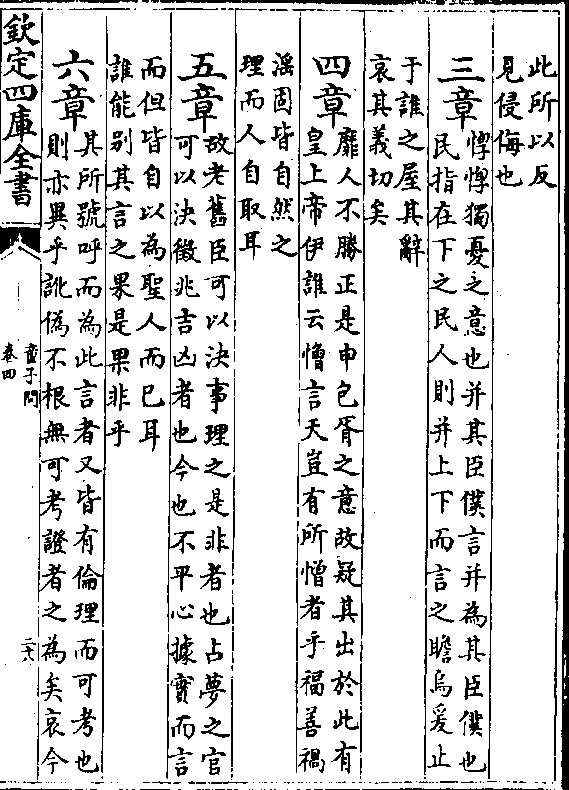 此所以反
見侵侮也
三章
惸惸獨憂之意也并其臣僕言并為其臣僕也
民指在下之民人則并上下而言之瞻烏爰止
于誰之屋其辭
哀其義切矣
四章
靡人不勝正是申包胥之意故疑其出於此有
皇上帝伊誰云憎言天豈有所憎者乎福善禍
淫固皆自然之
理而人自取耳
五章
故老舊臣可以決事理之是非者也占夢之官
可以決徵兆吉凶者也今也不平心據實而言
而但皆自以為聖人而已耳
誰能別其言之果是果非乎
六章
其所號呼而為此言者又皆有倫理而可考也
則亦異乎訛偽不根無可考證者之為矣哀今
欽定四庫全書
童子問
卷四
二六